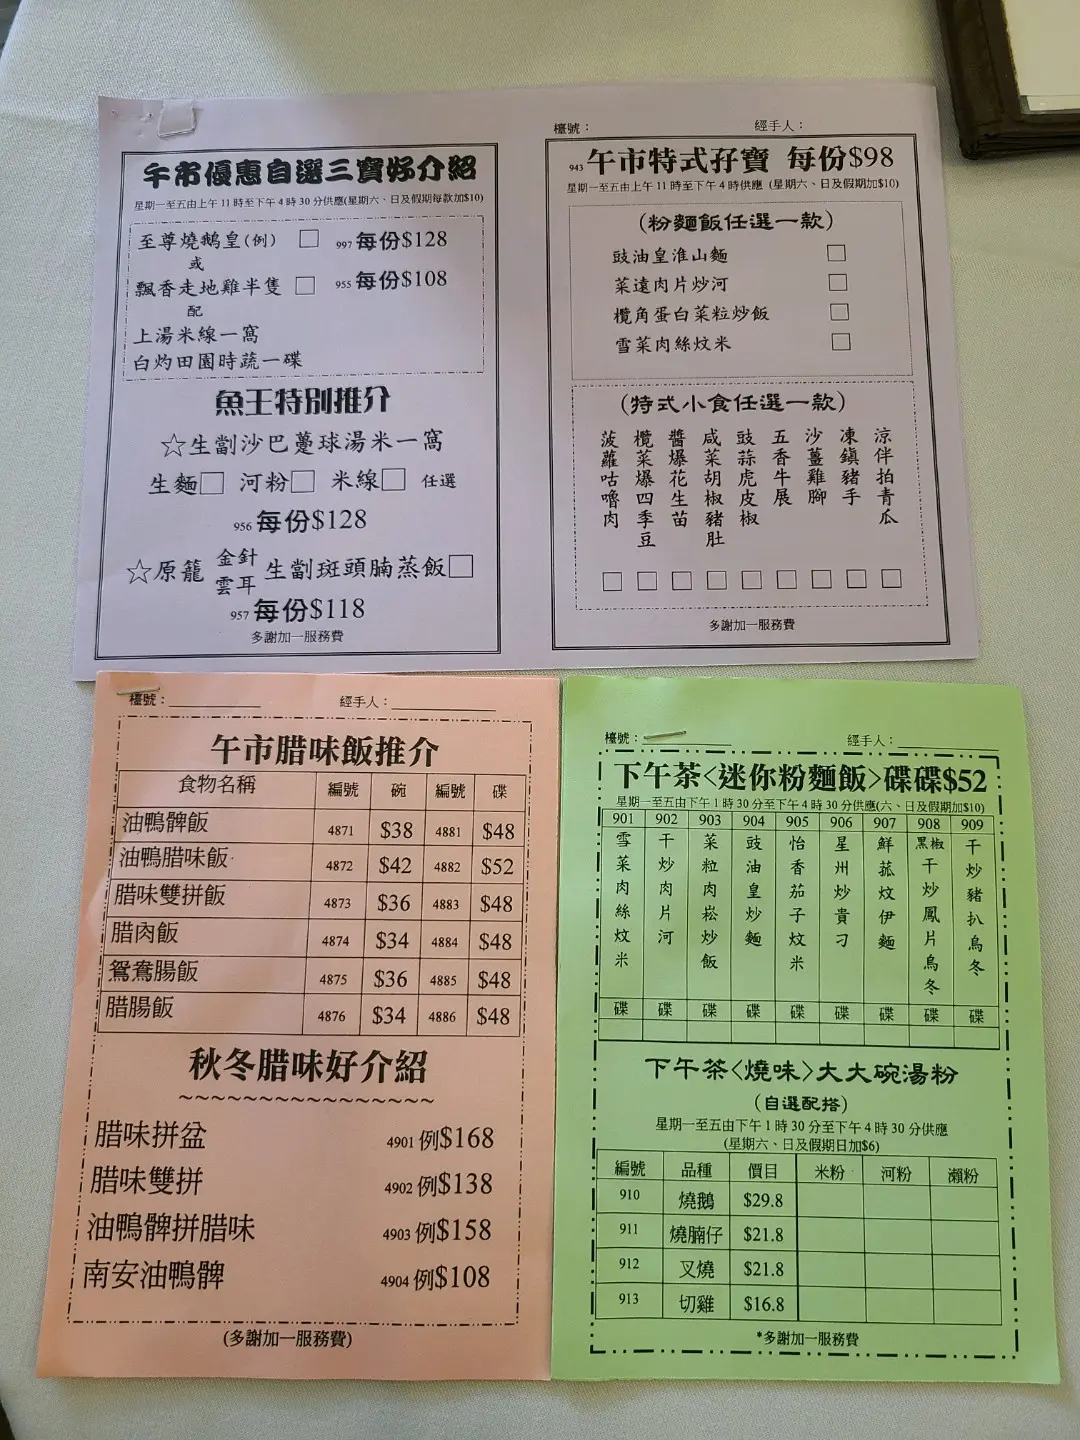 午市優惠自選三寶好介紹
星期一至五由上午11時至下午4時30分供應(星期六、日及假期每款加$10)
至尊燒鵝皇(例) □ 997 每份$128
或
飄香走地雞半隻 □ 955 每份$108
配
上湯米線一窩
白灼田園時蔬一碟
魚王特別推介
☆生劏沙巴躉球湯米一窩
生麵□ 河粉□ 米線□ 任選
956 每份$128
☆原籠 金針雲耳 生劏斑頭腩蒸飯□
957 每份$118
多謝加一服務費
檯號： 經手人：
943 午市特式孖寶 每份$98
星期一至五由上午11時至下午4時供應 (星期六、日及假期加$10)
(粉麵飯任選一款)
豉油皇淮山麵 □
菜遠肉片炒河 □
欖角蛋白菜粒炒飯 □
雪菜肉絲炆米 □
(特式小食任選一款)
菠蘿咕嚕肉 □
欖菜爆四季豆 □
醬爆花生苗 □
咸菜胡椒豬肚 □
豉蒜虎皮椒 □
五香牛展 □
沙薑雞腳 □
凍鎮豬手 □
涼伴拍青瓜 □
多謝加一服務費
檯號：__________ 經手人：__________
午市腊味飯推介
食物名稱 編號 碗 編號 碟
油鴨髀飯 4871 $38 4881 $48
油鴨腊味飯 4872 $42 4882 $52
腊味雙拼飯 4873 $36 4883 $48
腊肉飯 4874 $34 4884 $48
鴛鴦腸飯 4875 $36 4885 $48
腊腸飯 4876 $34 4886 $48
秋冬腊味好介紹
~~~~~~~~~~~~~~~~
腊味拼盆 4901 例$168
腊味雙拼 4902 例$138
油鴨髀拼腊味 4903 例$158
南安油鴨髀 4904 例$108
(多謝加一服務費)
檯號：__________ 經手人：__________
下午茶<迷你粉麵飯>碟碟$52
星期一至五由下午1時30分至下午4時30分供應(六、日及假期加$10)
901 902 903 904 905 906 907 908 909
雪菜肉絲炆米
干炒肉片河
菜粒肉崧炒飯
豉油皇炒麵
怡香茄子炆米
星州炒貴刁
鮮菰炆伊麵
黑椒干炒鳳片烏冬
干炒豬扒烏冬
碟 碟 碟 碟 碟 碟 碟 碟 碟
下午茶<燒味>大大碗湯粉
(自選配搭)
星期一至五由下午1時30分至下午4時30分供應
(星期六、日及假期日加$6)
編號 品種 價目 米粉 河粉 瀨粉
910 燒鵝 $29.8
911 燒腩仔 $21.8
912 叉燒 $21.8
913 切雞 $16.8
*多謝加一服務費